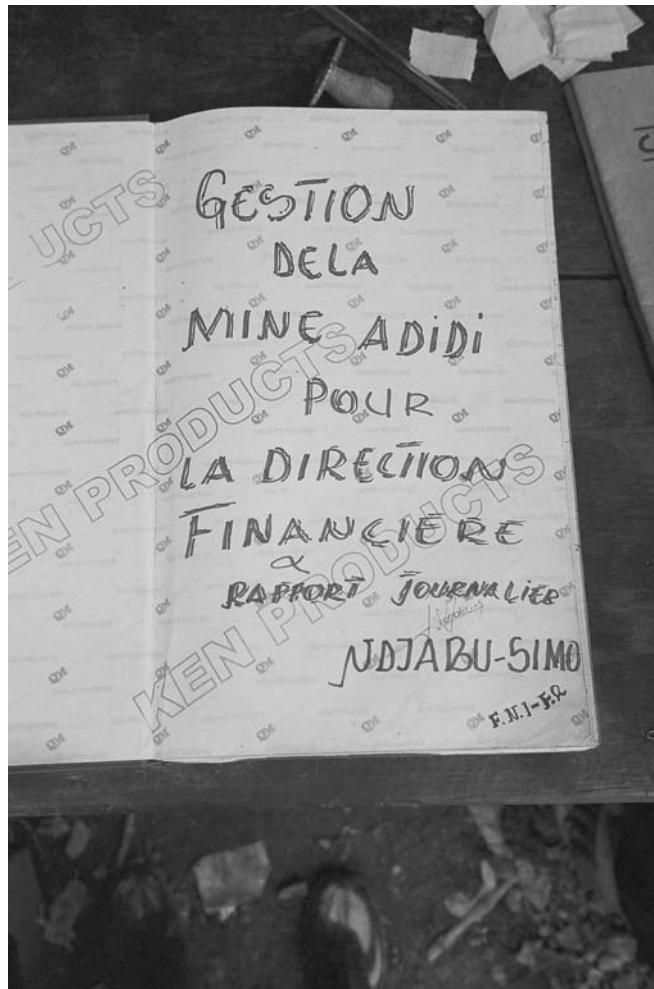 GESTION
DELA
MINE ADIDI
POUR
LA DIRECTION
FINANCIERE
&
RAPPORT JOURNALIER
NDJABU-SIMO
F.N.I-F.R
UCTS
KEN PRODUCTS
KEN PRODUCTS